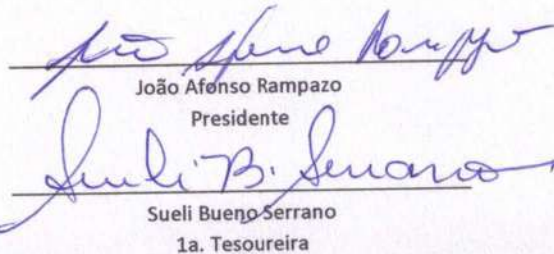 João Afonso Rampazo
Presidente
Sueli B. Serrano
Sueli Bueno Serrano
1a. Tesoureira